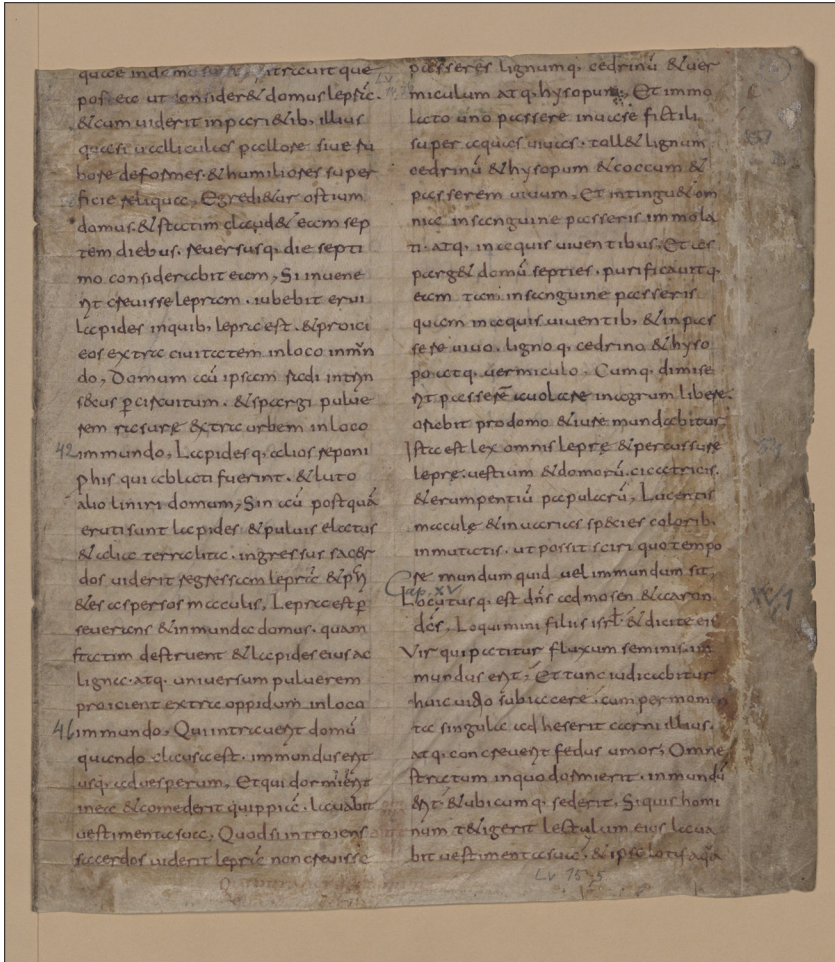 quae in domo sunt. intrabit que
postea ut consider& domus lepra.
& cum uiderit in pari&ib; illius
quasi ualliculas pallore siue ru
bore deformes & humiliores super
ficie reliqua, Egredi&ur ostium
domus. & statim claud& eam sep
tem diebus. reuersusq. die septi
mo considerabit eam, Si inuene
rit creuisse lepram. iubebit erui
lapides in quib; lepra est. & proici
eos extra ciuitatem in loco inmun
do, Domum aū ipsam radi intrin
secus p circuitum. & spargi pulue
rem rasurę extra urbem in loco
42 immundo, Lapides q. alios reponi
p his qui ablati fuerint. & luto
alio liniri domum, Sin aū postquā
eruti sunt lapides & puluis elatus
& alia terra lita. ingressus sacer
dos uiderit regressam leprā & pa
ri&es aspersos maculis, Lepra est p
seuerans & inmunda domus. quam
statim destruent & lapides eius ac
ligna. atq. uniuersum puluerem
proicient extra oppidum in loco
46 immundo, Qui intrauerit domū
quando clausa est. immundus erit
usq. ad uesperum, Et qui dormierit
in ea & comederit quippiā. lauabit
uestimenta sua, Quod si introiens
sacerdos uiderit leprā non creuisse
passeres lignumq. cedrinū & uer
miculum atq. hysopum, Et immo
lato uno passere in uase fictili
super aquas uiuas. toll& lignum
cedrinū & hysopum & coccum &
passerem uiuum, Et intingu& om
nia in sanguine passeris immola
ti. atq. in aquis uiuentibus, Et as
parg& domū septies. purificauitq.
eam tam in sanguine passeris
quam in aquis uiuentib; & in pas
sere uiuo. ligno q. cedrino & hyso
po atq. uermiculo, Cumq. dimise
rit passerē auolare in agrum libere.
orabit pro domo & iure mundabitur
Ista est lex omnis leprę & percussure
leprę. uestium & domorū. cicatricis.
& erumpentiū papularū, Lucentis
maculę & in uarias species colorib;
inmutatis. ut possit sciri quo tempo
re mundum quid uel immundum sit,
Cap. XV
Locutusq. est dn̄s ad mosen & aaron
dc̄s, Loquimini filiis isrl̄ & dicite eis
XV, 1
Vir qui patitur fluxum seminis in
mundus erit, Et tunc iudicabitur
huic uitio subiacere. cum per momen
ta singula adheserit carni illius.
atq. concreuerit fedus umor, Omne
stratum in quo dormierit. inmundū
erit. & ubicumq. sederit, Si quis homi
num t&igerit lectulum eius laua
bit uestimenta sua, & ipse lotus aqua
Lv 15,5